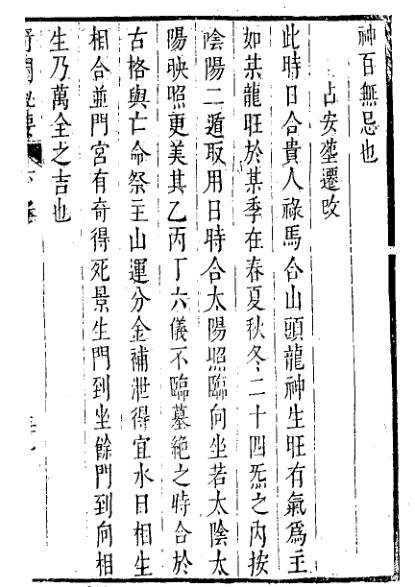 神百無忌也
占安塋遷改
此時日合貴人祿馬合山頭龍神生旺有氣爲主
如某龍旺於某季在春夏秋冬二十四炁之内按
陰陽二遁取用日時合太陽照臨向坐若太陰太
陽映照更美其乙丙丁六儀不臨墓絶之時合於
古格與亡命祭主山運分金補泄得宜水日相生
相合並門宮有奇得死景生門到坐餘門到向相
生乃萬全之吉也